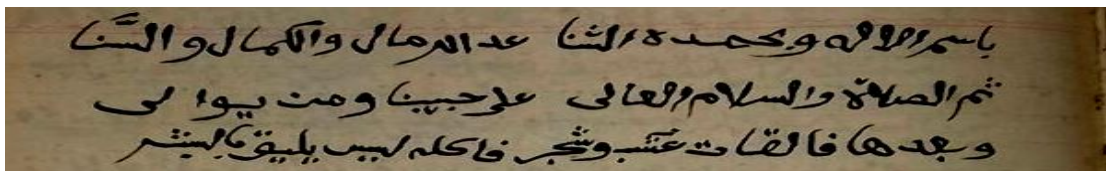 باسم الاله وبحمده الثنا عد الرمال والكمال والسنا
ثم الصلاة والسلام العالى على حبيبنا ومن يوالى
وبعدها فالقات عشب وشجر فاكله ليس يليق بالبشر